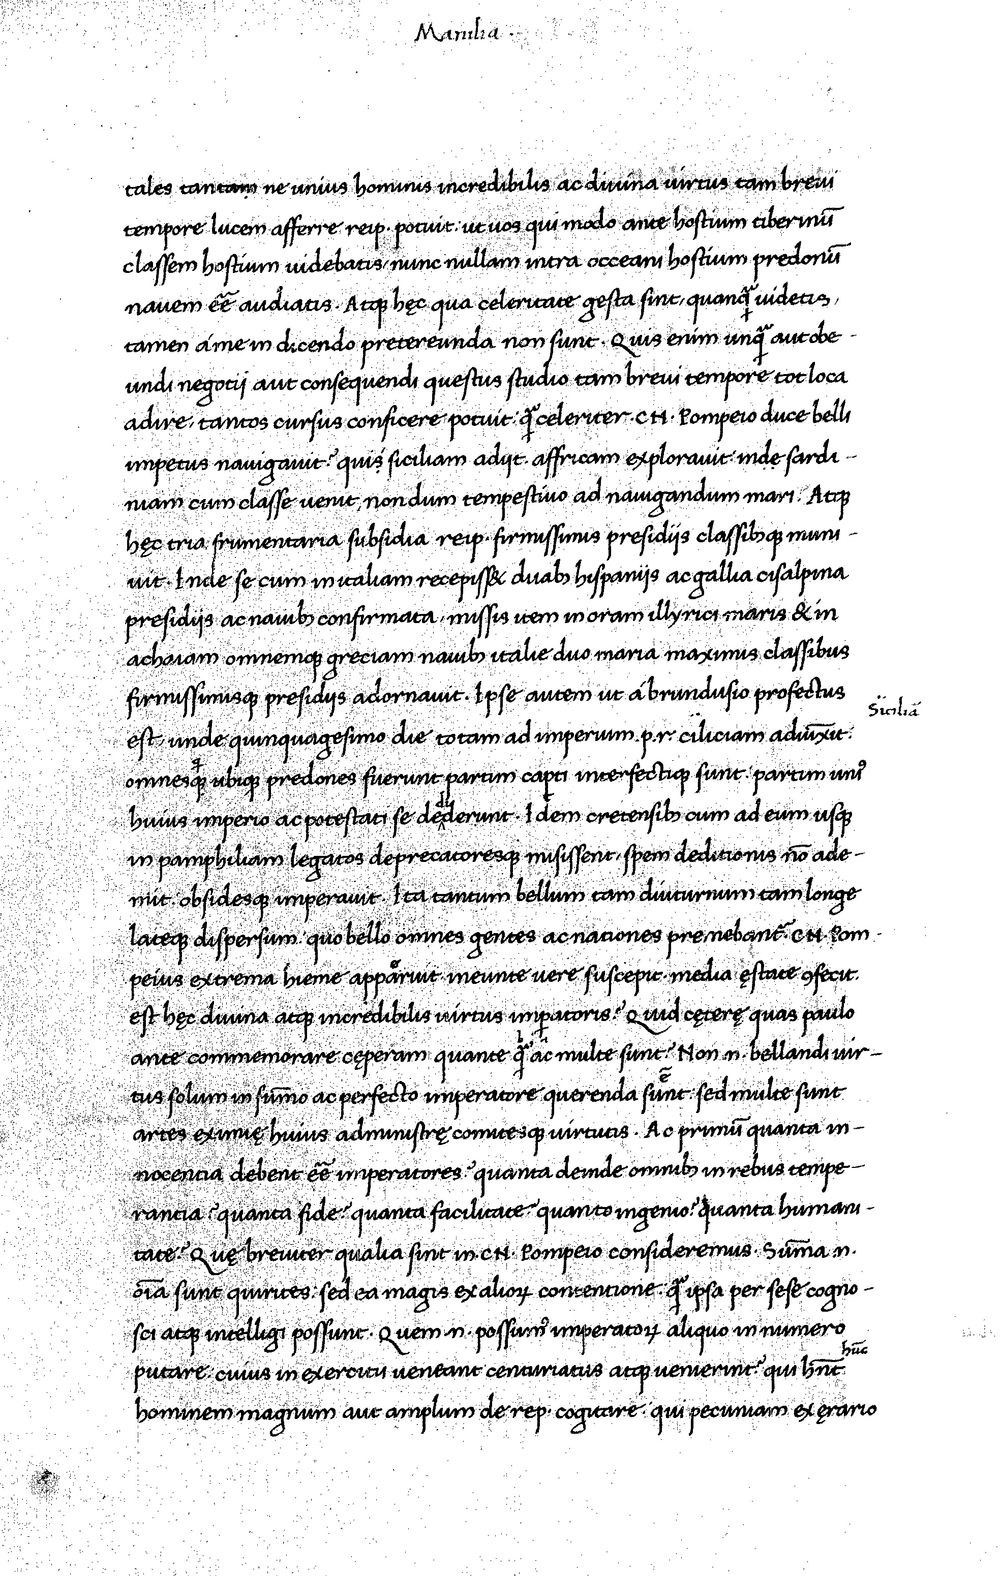 Manilia
tales tantam ne unius hominis incredibilis ac divina virtus tam brevi
tempore lucem afferre reip. potuit. ut vos qui modo ante hostium tiberinū
classem hostium videbatis, nunc nullam intra occeani hostium predonū
navem eē̄ audiatis. Atqꝫ hęc qua celeritate gesta sint, quanꝗ̄ videtis,
tamen á me in dicendo pretereunda non sunt. Quis enim unꝗ̄ aut obe-
undi negotij aut consequendi questus studio tam brevi tempore tot loca
adire, tantos cursus conficere potuit. ꝗ̄ celeriter. CN. Pompeio duce belli
impetus navigavit? quis siciliam adijt. affricam exploravit. inde sardi-
niam cum classe venit, nondum tempestivo ad navigandum mari. Atqꝫ
hęc tria frumentaria subsidia reip. firmissimis presidijs classibꝫqꝫ muni-
vit. Inde se cum in italiam recepiss& duabꝫ hispanijs ac gallia cisalpina
presidijs ac navibꝫ confirmata, missis item in oram illyrici maris & in
achaiam omnemqꝫ greciam navibꝫ italie duo maria maximis classibus
firmissimisqꝫ presidijs adornavit. Ipse autem ut á brundusio profectus
est, unde quinquagesimo die totam ad imperium .p.r. ciliciam adiūxit.
Siciliā
omnesqꝫ ubiqꝫ predones fuerunt partim capti interfectiqꝫ sunt. partim uniꝰ
huius imperio ac potestati se dederunt. Idem cretensibꝫ cum ad eum usqꝫ
in pamphiliam legatos deprecatoresqꝫ misissent, spem deditionis nō ade-
mit. obsidesqꝫ imperavit. Ita tantum bellum tam diuturnum tam longe
lateqꝫ dispersum. quo bello omnes gentes ac nationes premebant᷑. CN. Pom-
peius extrema hieme apparuit. ineunte vere suscepit. media ęstate ꝯfecit.
est hęc divina atqꝫ incredibilis virtus imꝑatoris? Quid cęterę quas paulo
ante commemorare cęperam quante ꝗ̄ ac multe sunt? Non .n. bellandi vir-
tus solum in sūmo ac perfecto imperatore querenda sūnt. sed multe sunt
ē
artes eximię huius administrę comitesqꝫ virtutis. Ac primū quanta in-
nocentia debent eē̄ imperatores? quanta deinde omnibꝫ in rebus tempe-
rantia? quanta fide? quanta facilitate? quanto ingenio? quanta humani-
tate? Quę breviter qualia sint in .CN. Pompeio consideremus. Sūma .n.
oīa sunt quirites. sed ea magis ex alioꝝ contentione. ꝗ̄ ipsa per sese cogno-
sci atqꝫ intelligi possunt. Quem .n. possumꝰ imperatoꝝ aliquo in numero
putare. cuius in exercitu veneant centuriatus atqꝫ venierint? qui hn̄t
hūc
hominem magnum aut amplum de rep. cogitare. qui pecuniam ex ęrario